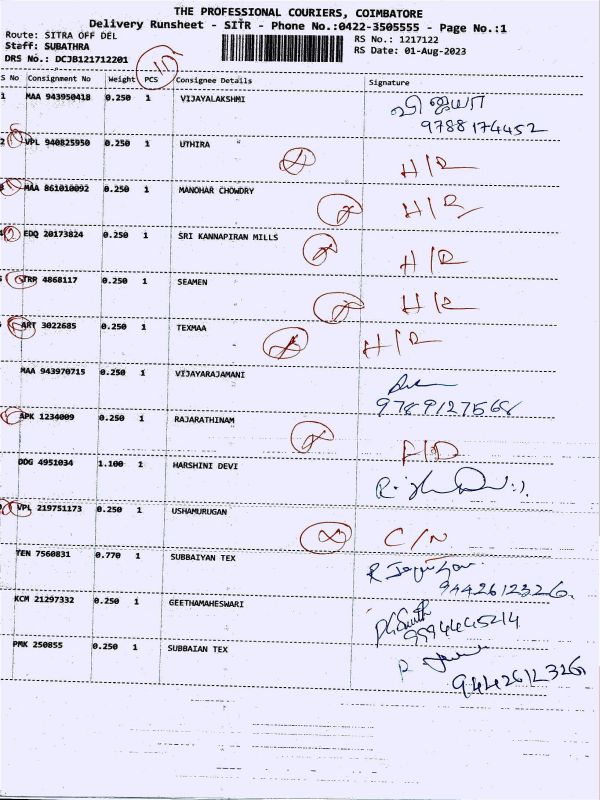 THE PROFESSIONAL COURIERS, COIMBATORE
Delivery Runsheet - SITR - Phone No.:0422-3505555 - Page No.:1
Route: SITRA OFF DEL
RS No.: 1217122
Staff: SUBATHRA
RS Date: 01-Aug-2023
DRS No.: DCJB121712201
S No Consignment No Weight PCS Consignee Details Signature
1 MAA 943950418 0.250 1 VIJAYALAKSHMI விஜயா
9788174452
2 VPL 940825950 0.250 1 UTHIRA H/R
MAA 861010092 0.250 1 MANOHAR CHOWDRY H/R
EDQ 20173824 0.250 1 SRI KANNAPIRAN MILLS H/R
TRP 4868117 0.250 1 SEAMEN H/R
ART 3022685 0.250 1 TEXMAA H/R
MAA 943970715 0.250 1 VIJAYARAJAMANI
9789127568
APK 1234009 0.250 1 RAJARATHINAM F/D
DDG 4951034 1.100 1 HARSHINI DEVI
VPL 219751173 0.250 1 USHAMURUGAN C/N
YEN 7560831 0.770 1 SUBBAIYAN TEX
9442612326
KCM 21297332 0.250 1 GEETHAMAHESWARI
9994445214
PMK 250855 0.250 1 SUBBAIAN TEX
9442612326